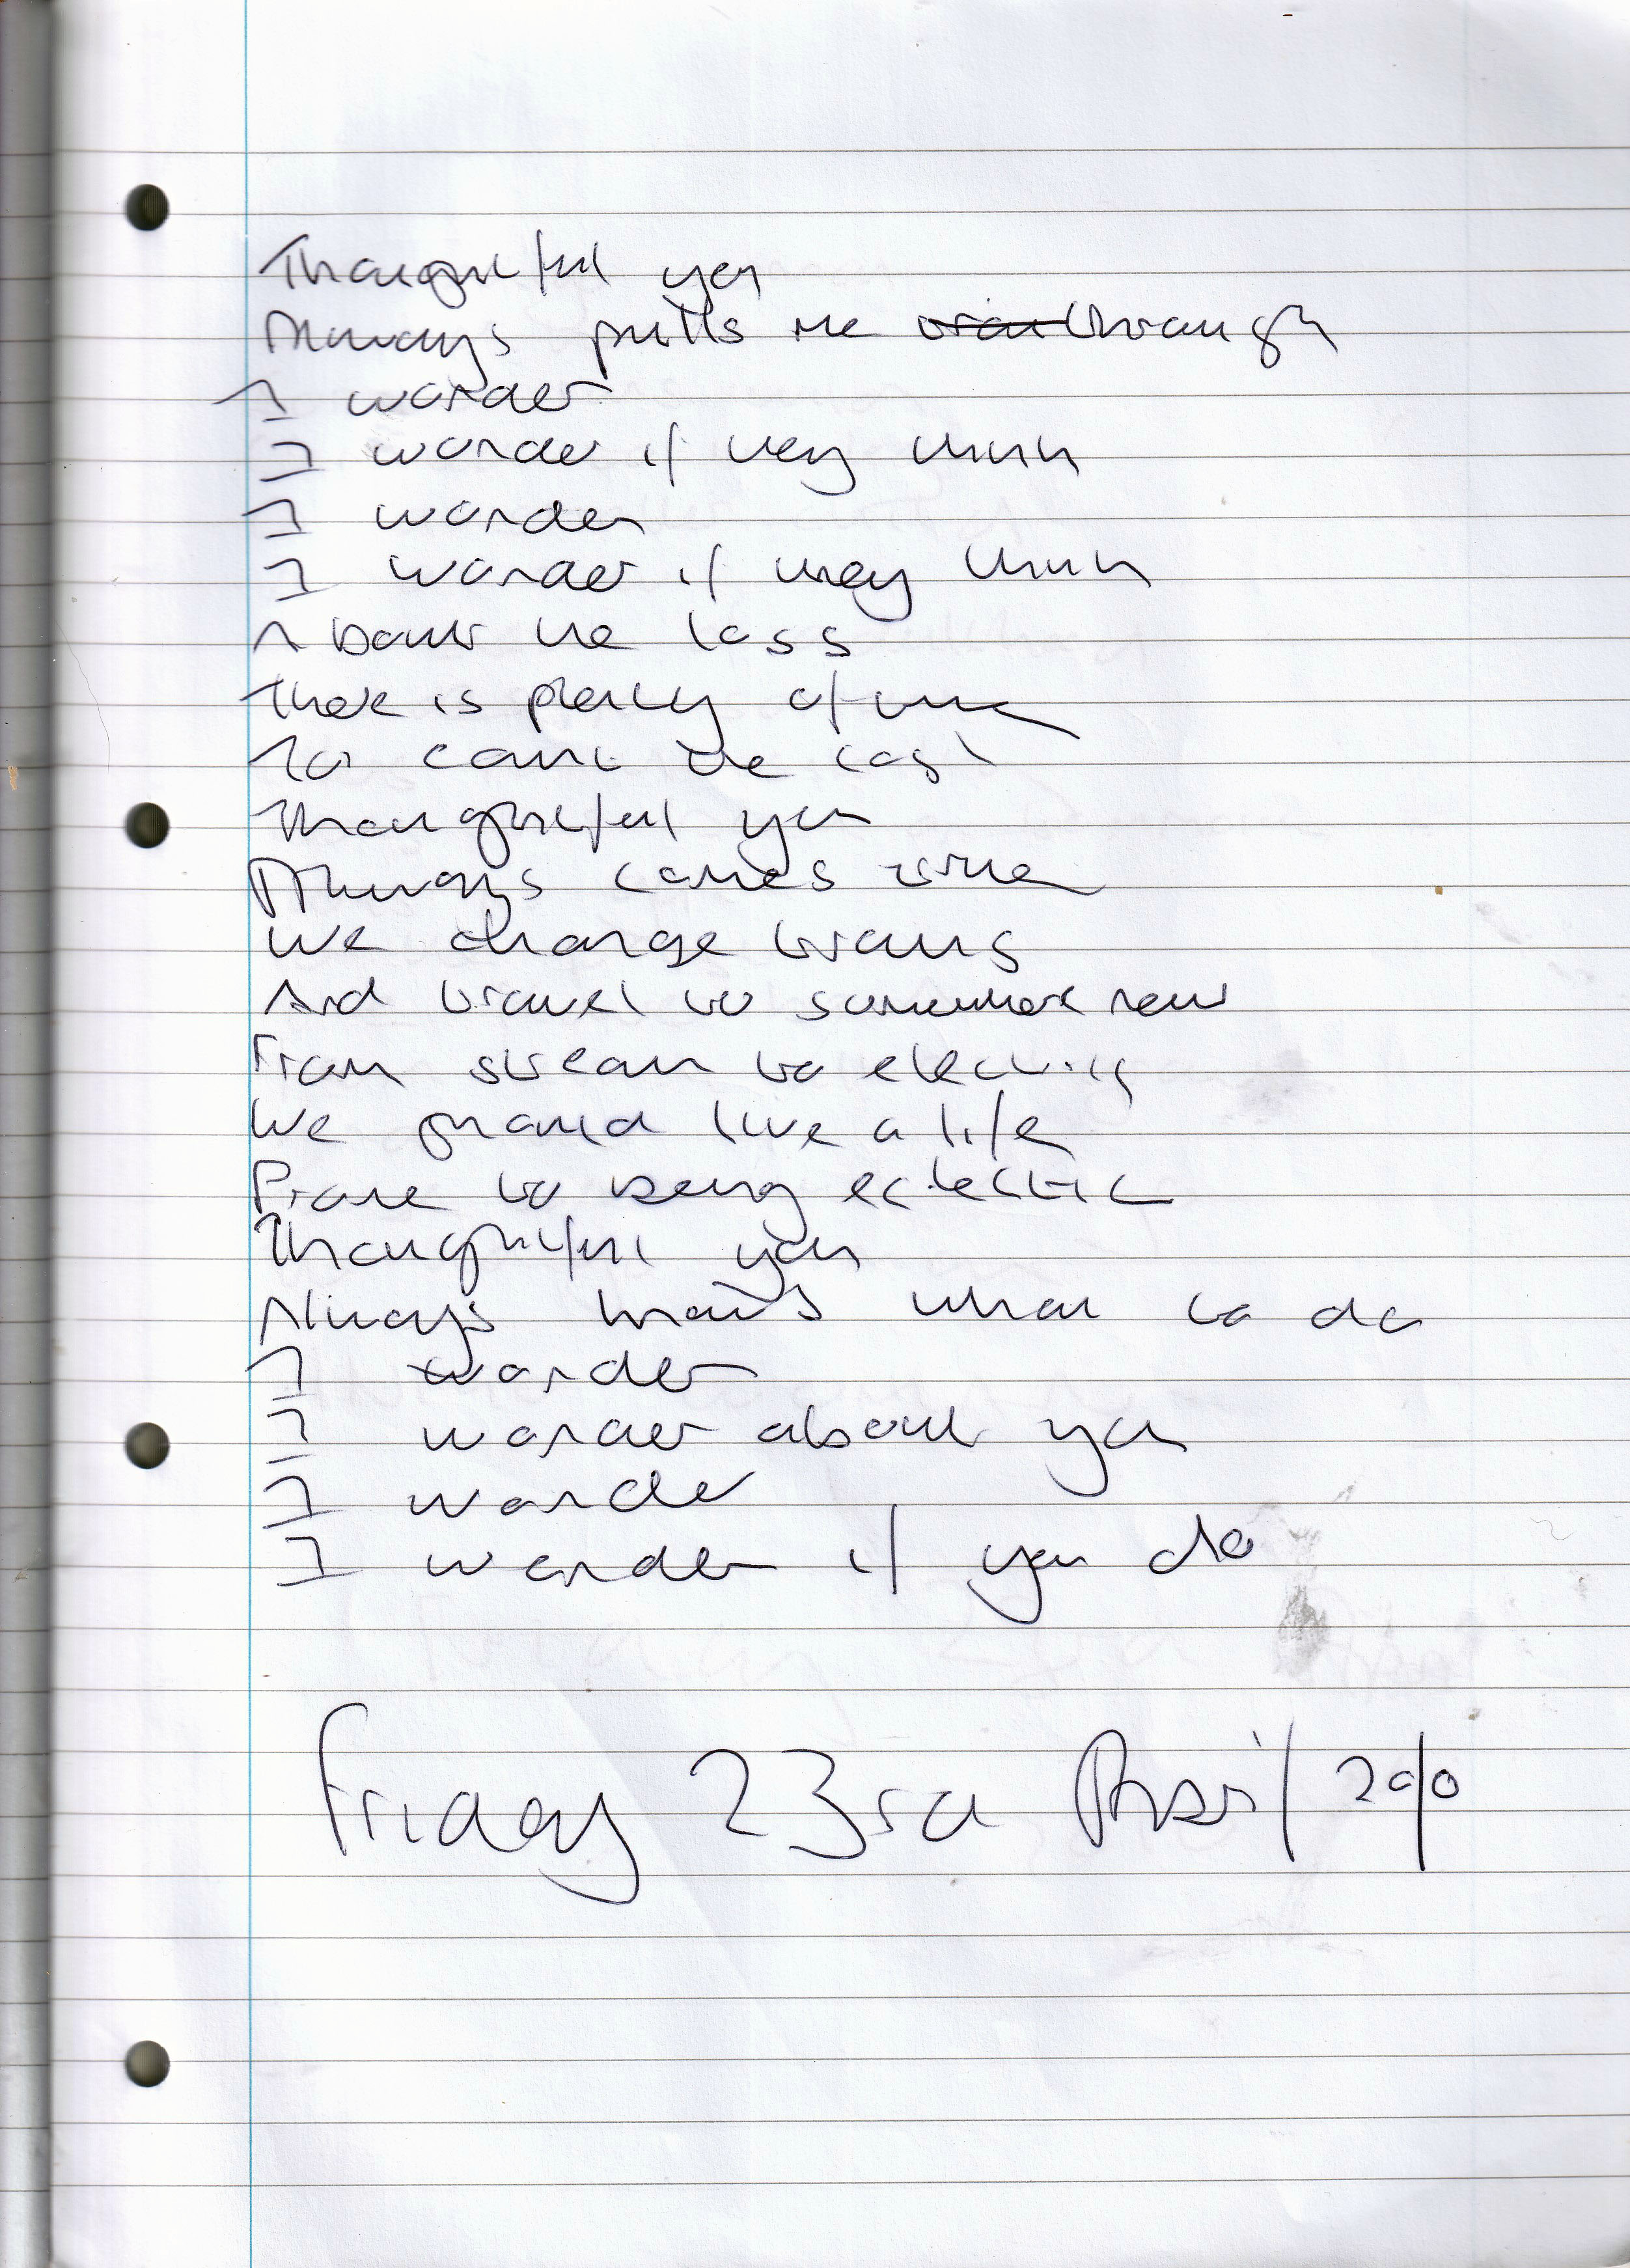 Thoughtful you
Always pulls me through
I wonder
I wonder if they think
I wonder
I wonder if they think
About the loss
There is plenty of time
To count the cost
Thoughtful you
Always comes true
We change trains
And travel to somewhere new
From steam to electric
We proud live a life
Prone to being eclectic
Thoughtful you
Always knows what to do
I wonder
I wonder about you
I wonder
I wonder if you do
Friday 23rd April 2010